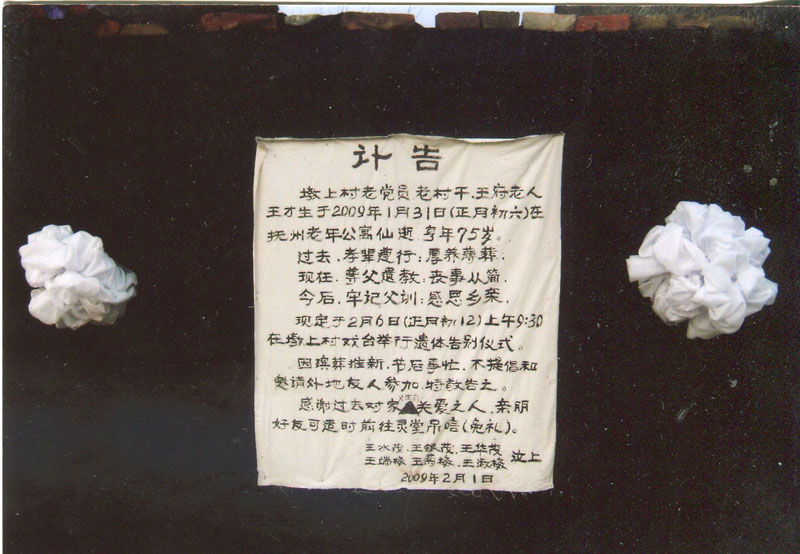 讣告
墩上村老党员、老村干、王府老人
王才生于2009年1月31日(正月初六)在
抚州老年公寓仙逝,享年75岁。
过去,孝辈遵行:厚养薄葬.
现在,尊父遗教:丧事从简.
今后,牢记父训:感恩乡亲.
现定于2月6日(正月初12)上午9:30
在墩上村戏台举行遗体告别仪式。
因殡葬推新,节后事忙,不提倡和
邀请外地友人参加,特敬告之。
感谢过去对家关爱之人,亲朋
好友可适时前往灵堂吊唁(免礼)。
王水茂、王银茂、王华茂
王端梅、王梅、王淑梅 泣上
2009年2月1日